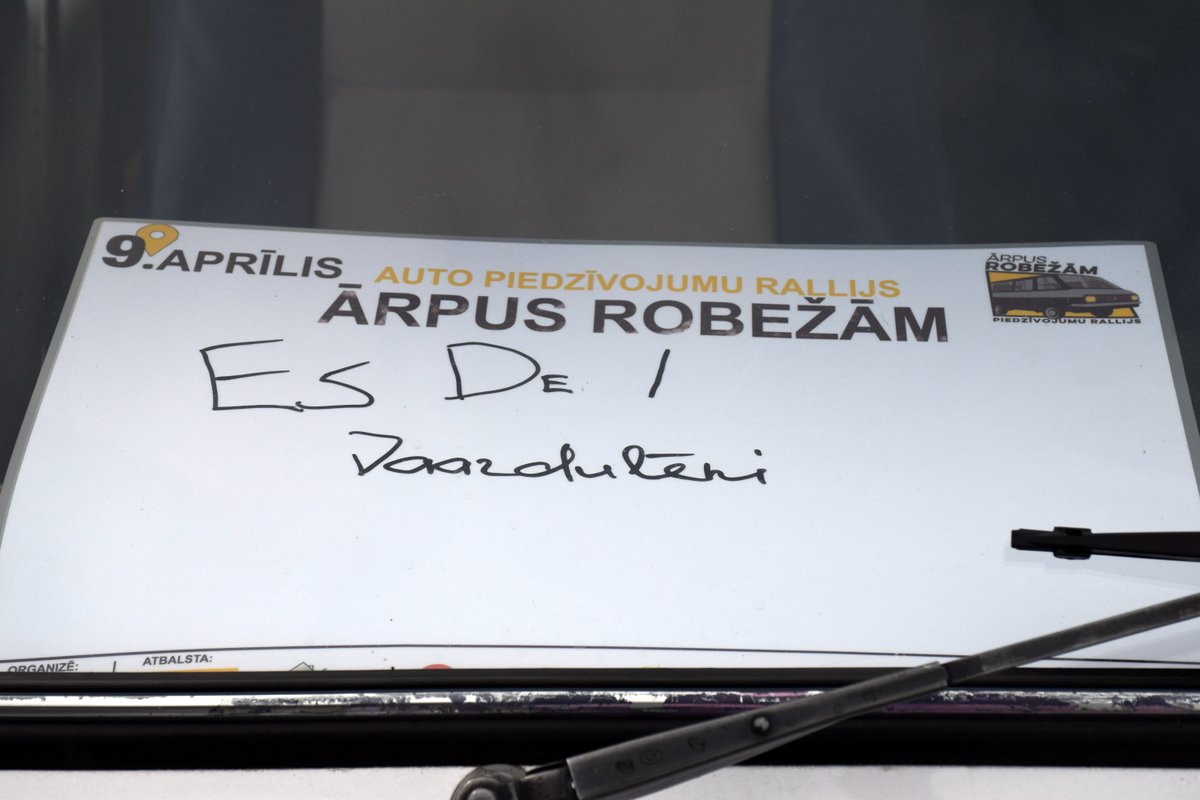 9.APRĪLIS
AUTO PIEDZĪVOJUMU RALLIJS
ĀRPUS ROBEŽĀM
ĀRPUS
ROBEŽĀM
PIEDZĪVOJUMU RALLIJS
ES DE !
ORGANIZĒ:
ATBALSTA: